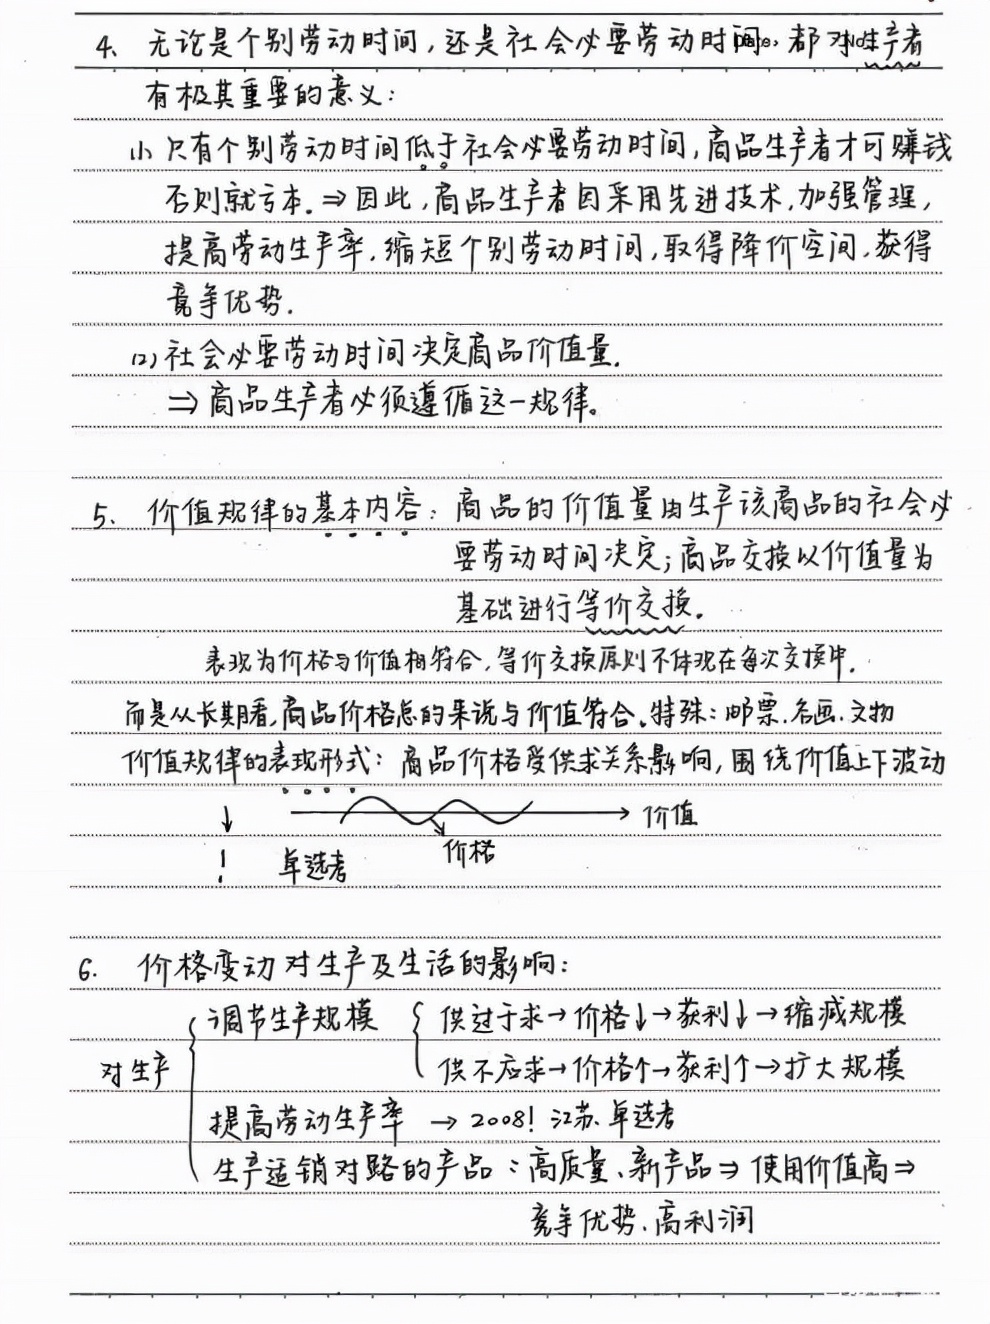 4、无论是个别劳动时间,还是社会必要劳动时间,都对生产者
有极其重要的意义:
(1)只有个别劳动时间低于社会必要劳动时间,商品生产者才可赚钱
否则就亏本。⇒因此,商品生产者因采用先进技术,加强管理,
提高劳动生产率,缩短个别劳动时间,取得降价空间,获得
竞争优势.
(2)社会必要劳动时间决定商品价值量.
⇒商品生产者必须遵循这一规律。
5、价值规律的基本内容:商品的价值量由生产该商品的社会必
要劳动时间决定;商品交换以价值量为
基础进行等价交换.
表现为价格与价值相符合,等价交换原则不体现在每次交换中.
而是从长期看,商品价格总的来说与价值符合.特殊:邮票.名画.文物
价值规律的表现形式:商品价格受供求关系影响,围绕价值上下波动
↓ → 价值
! 单选考 价格
6. 价格变动对生产及生活的影响:
调节生产规模 供过于求→价格↓→获利↓→缩减规模
对生产 供不应求→价格↑→获利↑→扩大规模
提高劳动生产率 → 2008! 江苏.单选考
生产适销对路的产品:高质量、新产品⇒使用价值高⇒
竞争优势.高利润